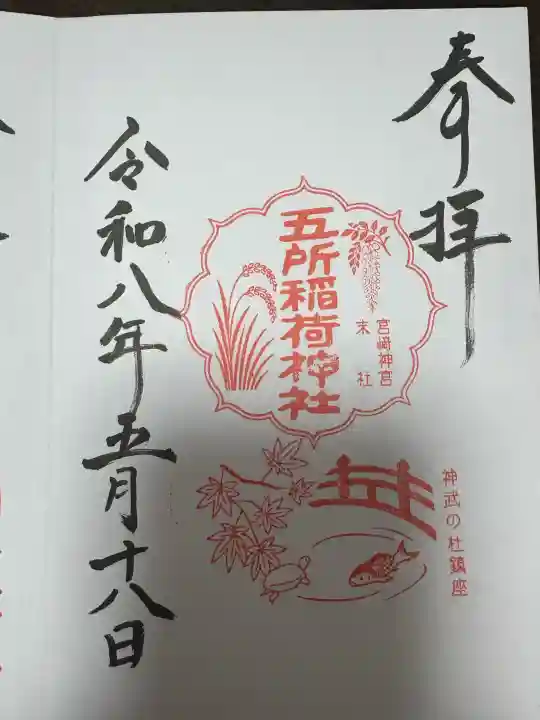 奉拝
神武の杜鎮座
宮崎神宮
末社
五所稲荷神社
令和八年五月十八日